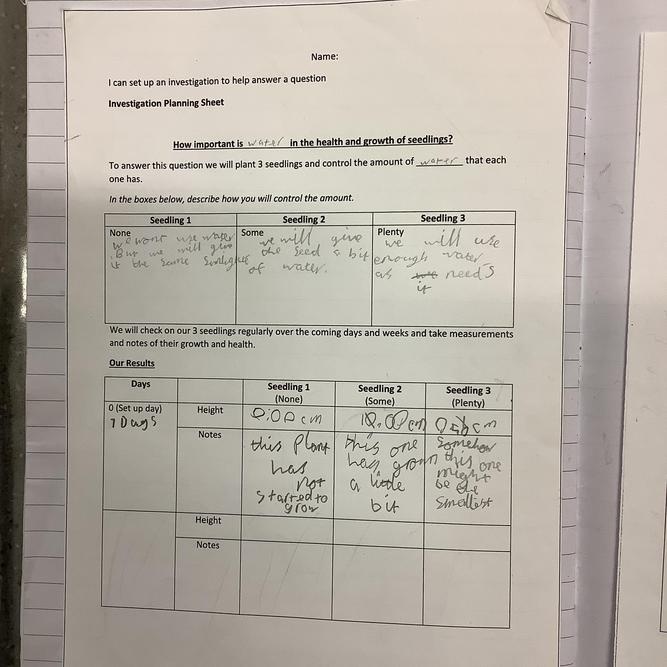 Name:
I can set up an investigation to help answer a question
Investigation Planning Sheet
How important is water in the health and growth of seedlings?
To answer this question we will plant 3 seedlings and control the amount of water that each
one has.
In the boxes below, describe how you will control the amount.
Seedling 1
None
we wont use water
But we will give
it the same
Seedling 2
Some
we will give
the seed a bit
of water.
Seedling 3
Plenty
we will use
enough water
as needs
it
We will check on our 3 seedlings regularly over the coming days and weeks and take measurements
and notes of their growth and health.
Our Results
Days
Seedling 1
(None)
Seedling 2
(Some)
Seedling 3
(Plenty)
0 (Set up day)
7 Days
Height
0.00 cm
10.00 cm
cm
Notes
this Plant
has
not
started to
grow
this one
has grown
a little
bit
Somehow
this one
might
be the
smallest
Height
Notes